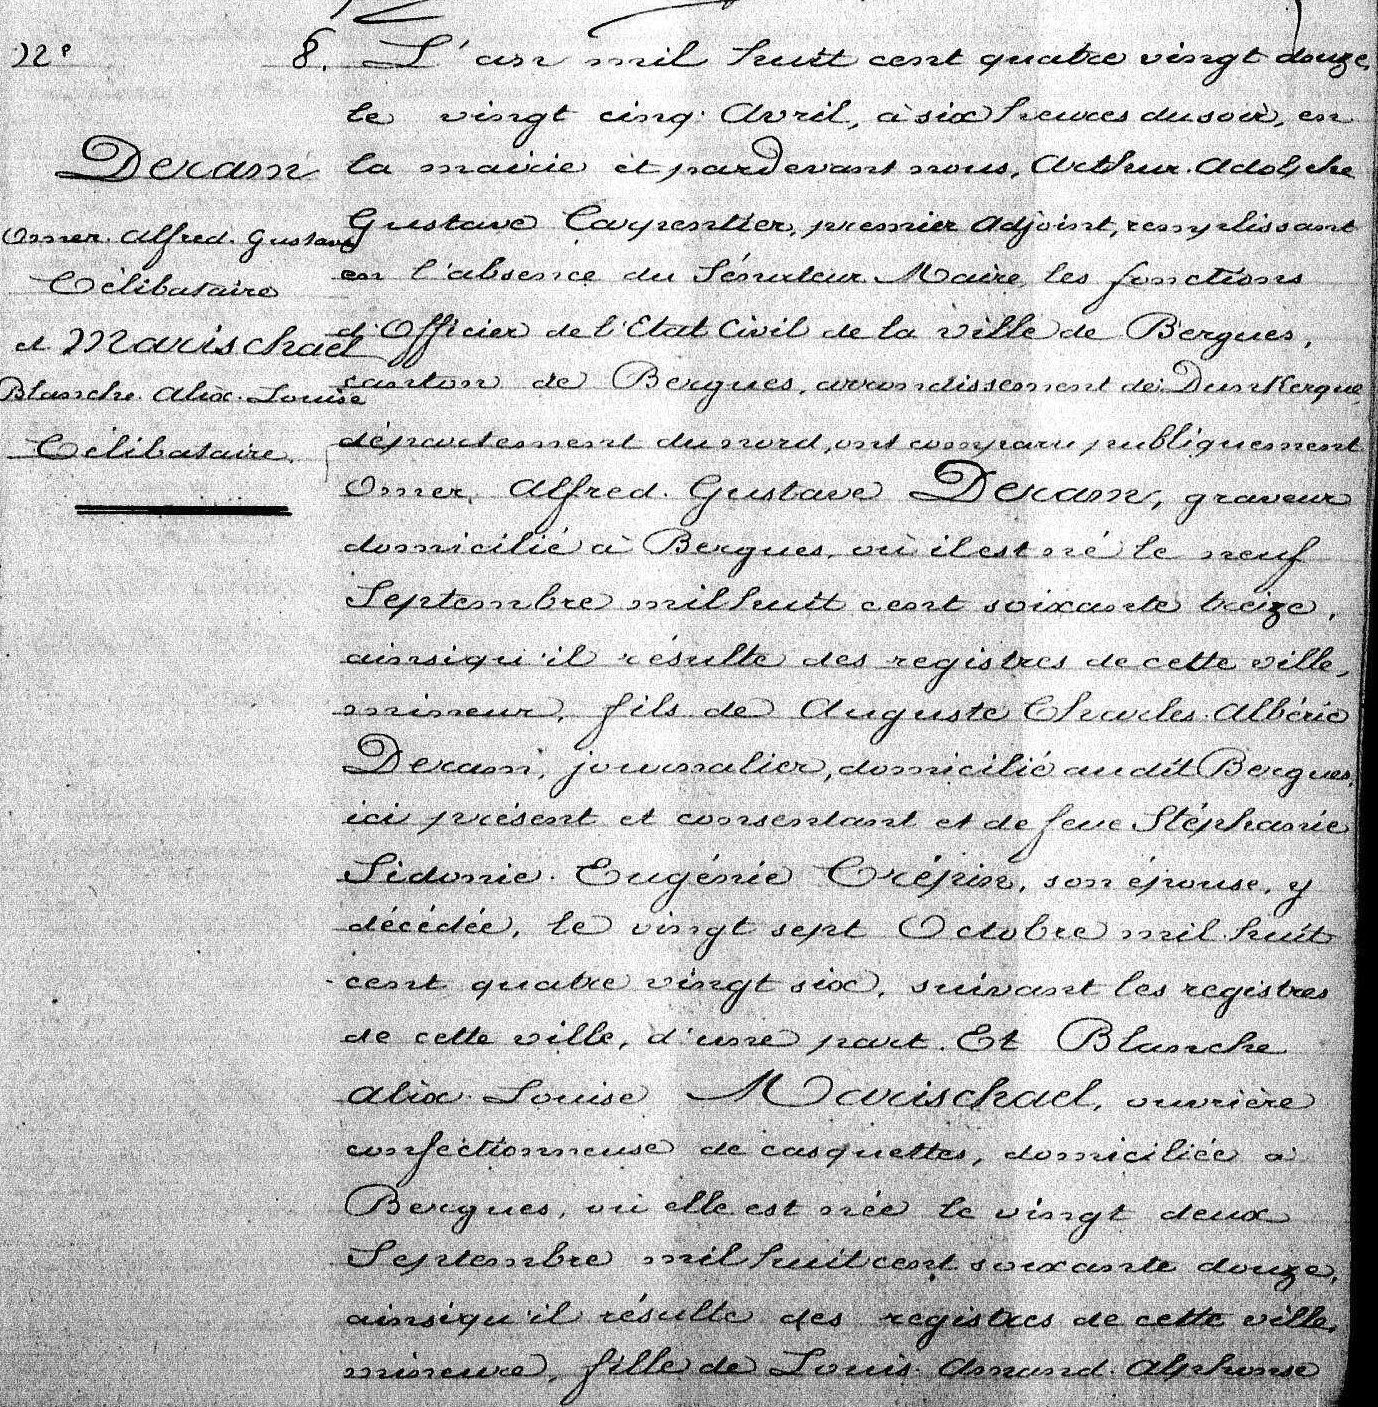 12e
8. L'an mil huit cent quatre vingt douze,
le vingt cinq Avril, à six heures du soir, en
la mairie et pardevant nous, Arthur Adolphe
Gustave Carpentier, premier Adjoint, remplissant
en l'absence du Sénateur Maire, les fonctions
d'Officier de l'Etat Civil de la ville de Bergues,
canton de Bergues, arrondissement de Dunkerque,
département du nord, ont comparu publiquement
Omer, Alfred Gustave Deram, graveur
domicilié à Bergues, où il est né le neuf
Septembre mil huit cent soixante treize,
ainsi qu'il résulte des registres de cette ville,
mineur, fils de Auguste Charles Albéric
Deram, journalier, domicilié audit Bergues,
ici présent et consentant et de feue Stéphanie
Sidonie Eugénie Crépin, son épouse, y
décédée, le vingt sept Octobre mil huit
cent quatre vingt six, suivant les registres
de cette ville, d'une part. Et Blanche
Alix Louise Marischael, ouvrière
confectionneuse de casquettes, domiciliée à
Bergues, où elle est née le vingt deux
Septembre mil huit cent soixante douze,
ainsi qu'il résulte des registres de cette ville,
mineure, fille de Louis Amand Alphonse
Deram
Omer Alfred Gustave
Célibataire
et Marischael
Blanche Alix Louise
Célibataire.